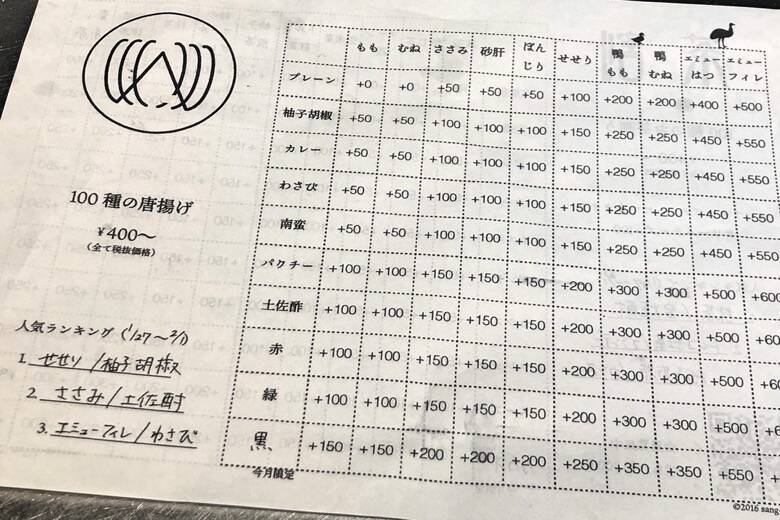 100種の唐揚げ
¥400～
(全て税抜価格)
人気ランキング (1/27～2/1)
1. せせり/柚子胡椒
2. ささみ/土佐酢
3. エミューフィレ/わさび
もも むね ささみ 砂肝 ぼんじり せせり 鴨もも 鴨むね エミューはつ エミューフィレ
プレーン +0 +0 +50 +50 +50 +100 +200 +200 +400 +500
柚子胡椒 +50 +50 +100 +100 +100 +150 +250 +250 +450 +550
カレー +50 +50 +100 +100 +100 +150 +250 +250 +450 +550
わさび +50 +50 +100 +100 +100 +150 +250 +250 +450 +550
南蛮 +50 +50 +100 +100 +100 +150 +250 +250 +450 +550
パクチー +100 +100 +150 +150 +150 +200 +300 +300 +500 +600
土佐酢 +100 +100 +150 +150 +150 +200 +300 +300 +500 +60
赤 +100 +100 +150 +150 +150 +200 +300 +300 +500 +60
緑 +100 +100 +150 +150 +150 +200 +300 +300 +500 +6
黒 +150 +150 +200 +200 +200 +250 +350 +350 +550 +6
今月限定
©2016 sang